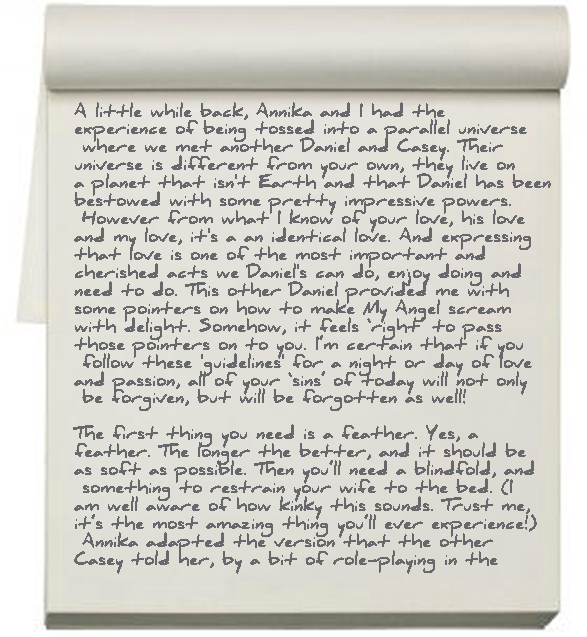 A little while back, Annika and I had the
experience of being tossed into a parallel universe
where we met another Daniel and Casey. Their
universe is different from your own, they live on
a planet that isn't Earth and that Daniel has been
bestowed with some pretty impressive powers.
However from what I know of your love, his love
and my love, it's a an identical love. And expressing
that love is one of the most important and
cherished acts we Daniel's can do, enjoy doing and
need to do. This other Daniel provided me with
some pointers on how to make My Angel scream
with delight. Somehow, it feels 'right' to pass
those pointers on to you. I'm certain that if you
follow these 'guidelines' for a night or day of love
and passion, all of your 'sins' of today will not only
be forgiven, but will be forgotten as well!
The first thing you need is a feather. Yes, a
feather. The longer the better, and it should be
as soft as possible. Then you'll need a blindfold, and
something to restrain your wife to the bed. (I
am well aware of how kinky this sounds. Trust me,
it's the most amazing thing you'll ever experience!)
Annika adapted the version that the other
Casey told her, by a bit of role-playing in the